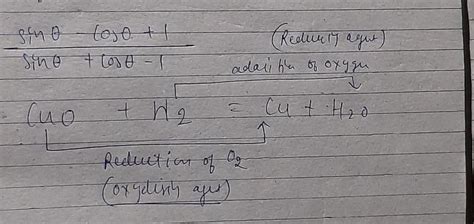 sinθ - cosθ + 1
sinθ + cosθ - 1
(Reducing agent)
addition of oxygen
CuO + H2 = Cu + H2O
Reduction of O2
(oxydising agent)